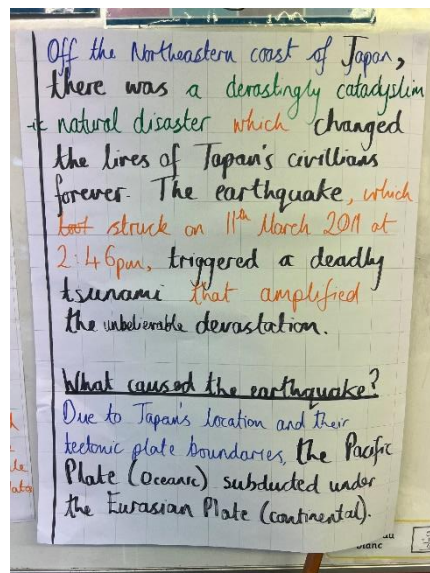 Off the Northeastern coast of Japan,
there was a devastingly catadyslim
-ic natural disaster which changed
the lives of Japan's civillians
forever. The earthquake, which
struck on 11th March 2011 at
2:46pm, triggered a deadly
tsunami that amplified
the unbelievable devastation.
What caused the earthquake?
Due to Japan's location and their
tectonic plate boundaries, the Pacific
Plate (Oceanic) subducted under
the Eurasian Plate (continental).